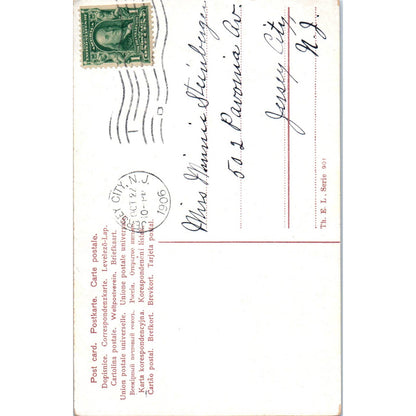 Post card. Postkarte. Carte postale.
Dopisnice. Correspondenzkarte. Levelező-Lap.
Cartolina postale. Weltpostverein. Briefkaart.
Union postale universelle. Unione postale universale
Всемірный почтовый союзъ. Россія. Открытое
Karta korespondencyjna. Korespondenční lístek
Cartão postal. Brefkort. Brevkort. Tarjeta postal.
CITY
OCT
1906
Miss Minnie Steinberger
502 Pavonia Av.
Jersey City
N.J.
Th. E. L. Serie 901